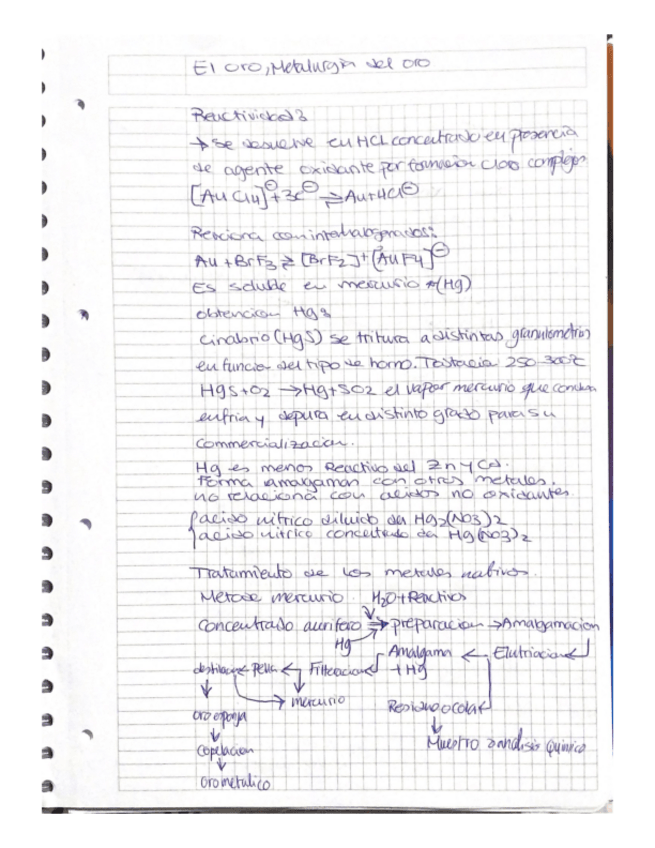 El oro, Metalurgia del oro
Reactividad:
→ Se disuelve en HCl concentrado en presencia
de agente oxidante por formacion cloro complejos
[AuCl4]⊖ + 3e⊖ ⇌ Au + 4Cl⊖
Reacciona con interhalogenados:
Au + BrF3 ⇌ [BrF2]+ [AuF4]⊖
Es soluble en mercurio (Hg)
obtencion Hg:
Cinabrio (HgS) se tritura a distintas granulometrias
en funcion del tipo de horno. Tostacion 250-300ºC
HgS + O2 → Hg + SO2 el vapor mercurio que condensa
enfria y depura en distinto grado para su
Commercializacion.
Hg es menos Reactivo del Zn y Cd.
Forma amalgaman con otros metales.
no relaciona con acidos no oxidantes
acido nitrico diluido da Hg2(NO3)2
acido nitrico concentrado da Hg(NO3)2
Tratamiento de los metales nativos.
Metodo mercurio H2O + Reactivos
Concentrado aurifero ⇒ preparacion → Amalgamacion
Hg Amalgama ← Elutriacion
destilacion ← Pella ← Filtracion + Hg
mercurio Residuo o cola
oro esponja
Muestro análisis químico
Copelacion
oro metalico